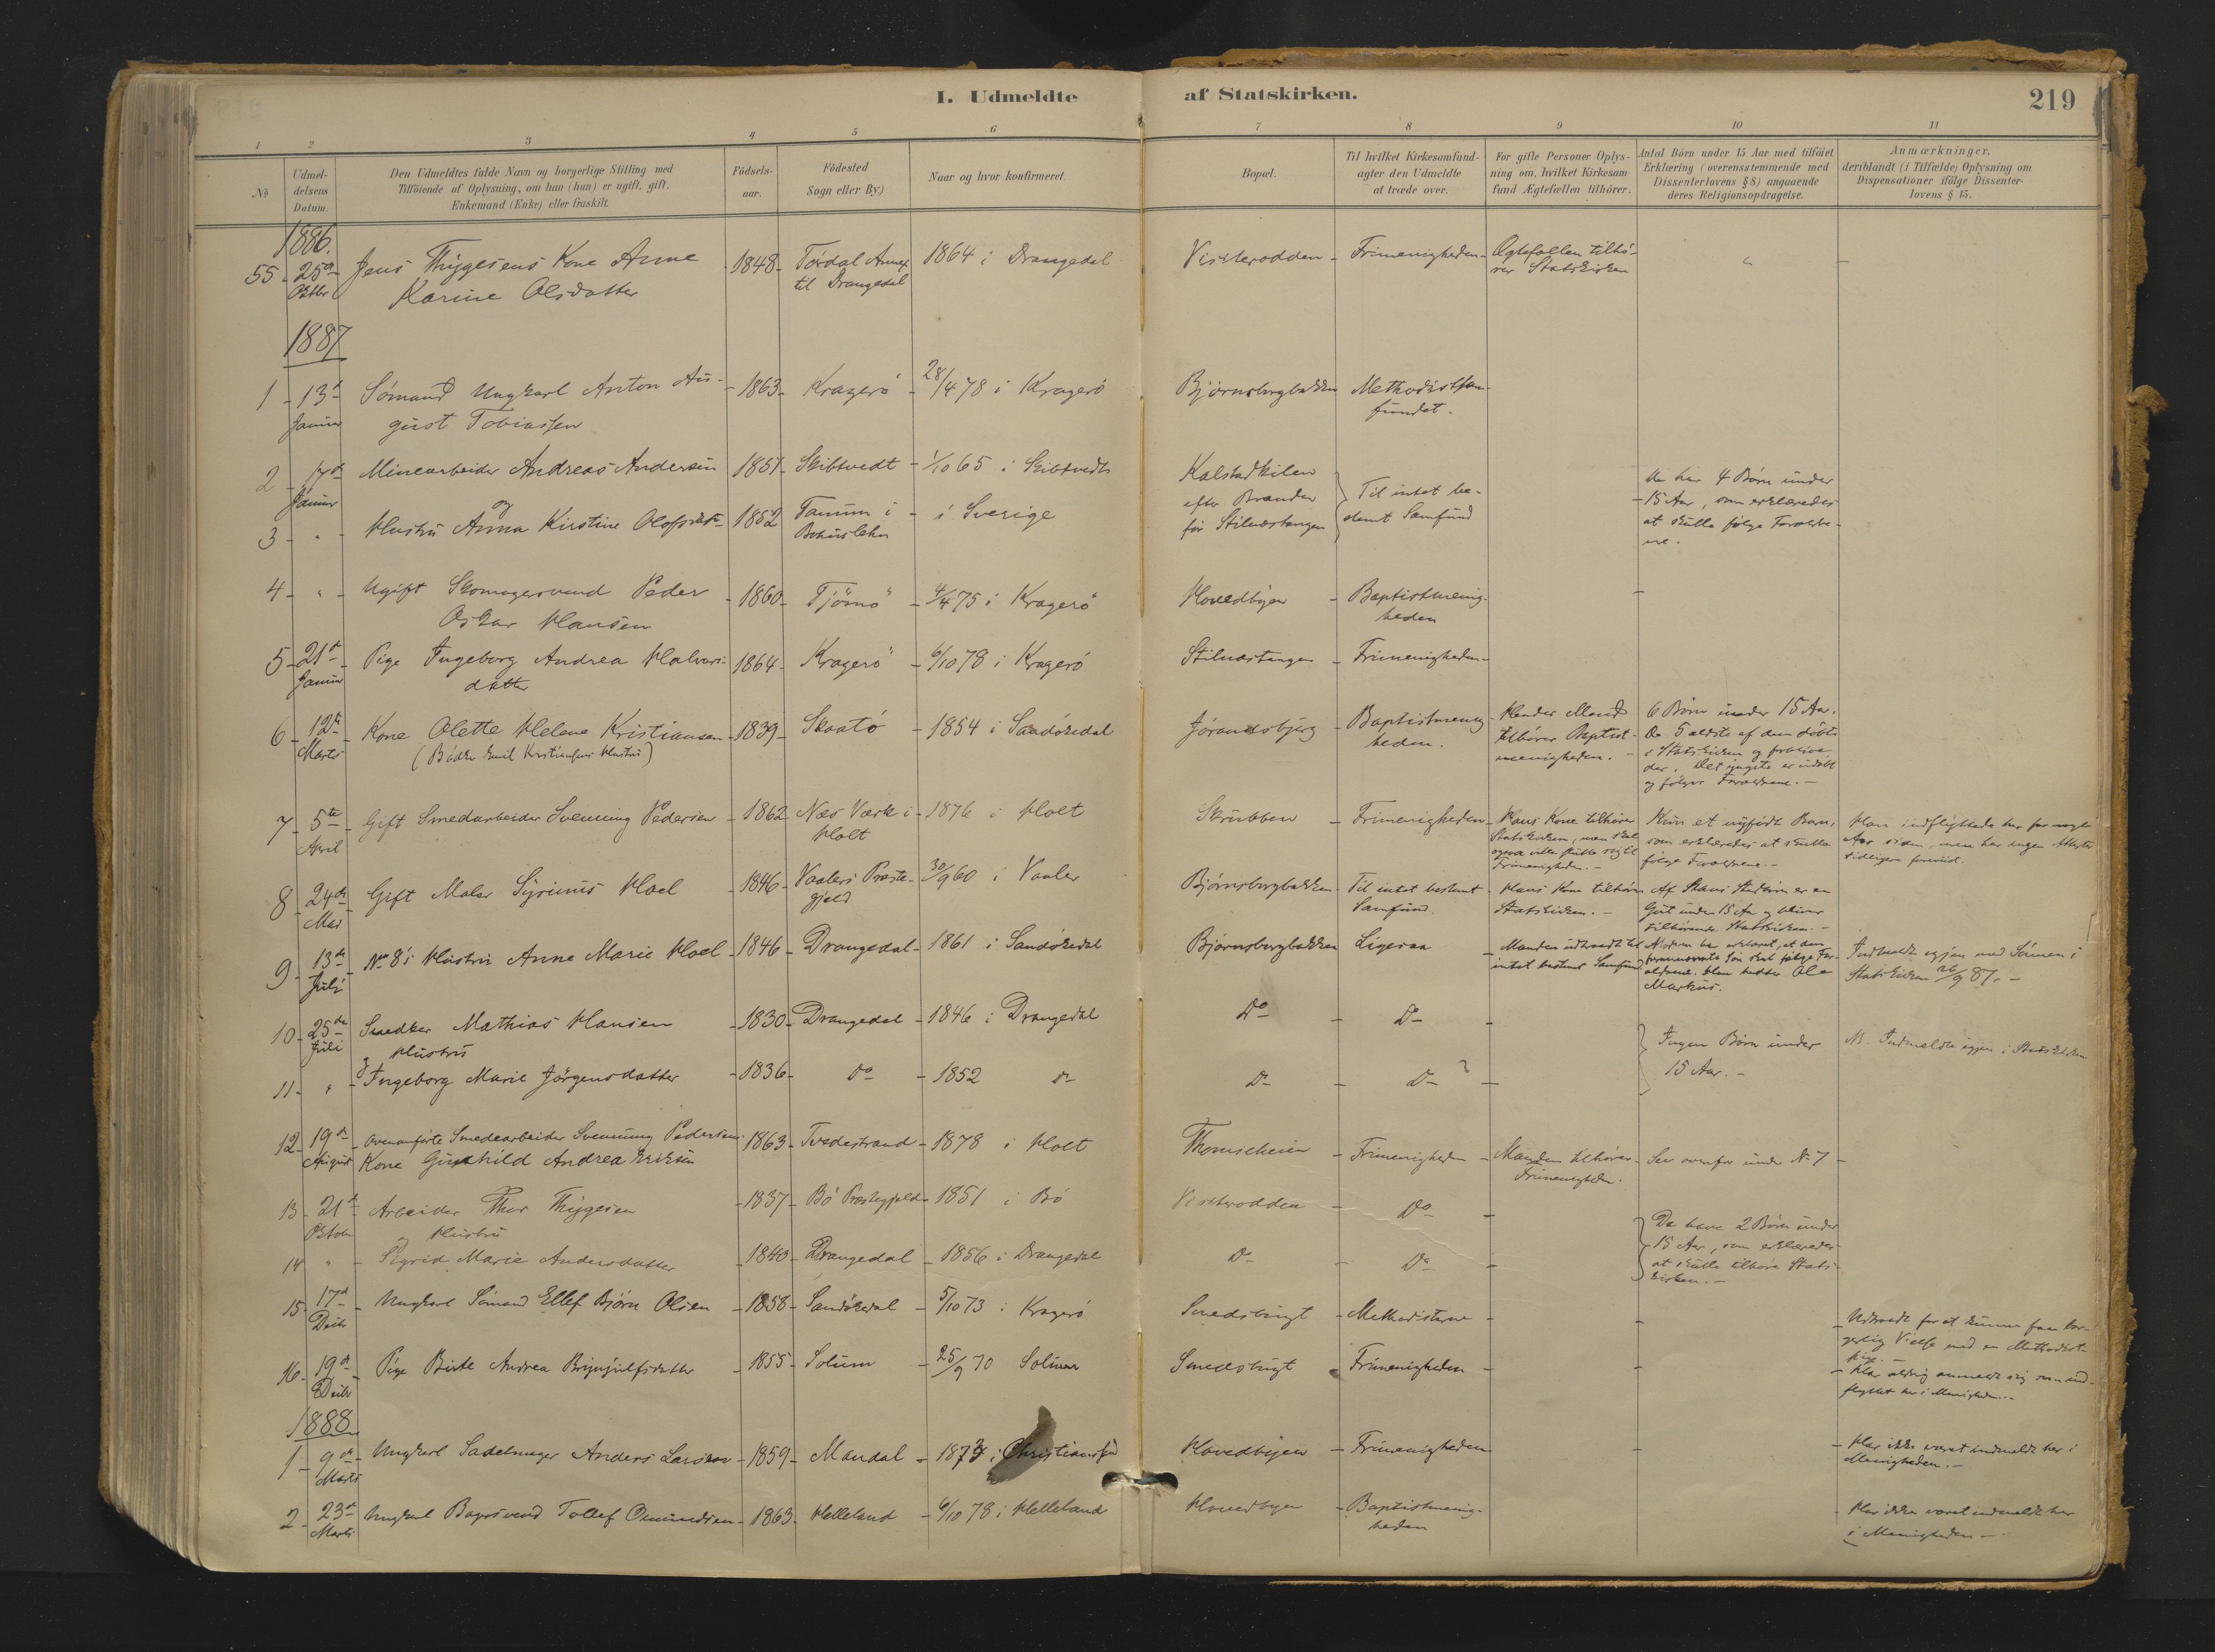 I. Udmeldte af Statskirken. 219
1 2 3 4 5 6 7 8 9 10 11
No
Udmel-
delsens
Datum.
Den Udmeldtes fulde Navn og borgerlige Stilling med
Tilföiende af Oplysning, om han (hun) er ugift, gift,
Enkemand (Enke) eller fraskilt.
Födsels-
aar.
Födested
Sogn eller By.)
Naar og hvor konfirmeret.
Bopæl.
Til hvilket Kirkesamfund-
agter den Udmeldte
at træde over.
For gifte Personer Oplys-
ning om, hvilket Kirkesam-
fund Ægtefællen tilhörer.
Antal Börn under 15 Aar med tilföiet
Erklæring (overensstemmende med
Dissenterlovens § 8) angaaende
deres Religionsopdragelse.
Anmærkninger,
deriblandt (i Tilfælde) Oplysning om
Dispensationer ifölge Dissenter-
lovens § 15.
1886.
55 - 25de Jens Thygesens Kone Anne - 1848 - Tördal Annex 1864 i Drangedal - Frimenigheden - Ægtefællen tilhö- " -
Oktbr Karine Olsdatter til Drangedal rer Statskirken
1887
1 - 13de Sömand Ungkarl Anton Au- - 1863 - Kragerö - 28/4 78 i Kragerö Björnsborgbakken Methodistsam-
Januar gust Tobiassen fundet.
2 - Minearbeider Andreas Andersen 1851 - Skibtvedt - 1/10 65 i Skibtvedt Kalstadkilen De har 4 Börn under
Januar og efter Til intet be- - 15 Aar, som erklæredes
3 - " - Hustru Anna Kirstine - 1852 Tanum i - i Sverige stemt Samfund at skulle følge Forældre-
Bohuslehn før Stilnæstangen ne.
4 - " - Ugift Skomagersvend Peder - 1860 - Tjömö - 4/4 75 i Kragerö Hovedbyen - Baptistmenig- -
Oskar Hansen heden
5 - 21de - Pige Ingeborg Andrea Halvors- 1864 - Kragerö - 6/10 78 i Kragerö Stilnæstangen - Frimenigheden -
Januar datter
6 - 12te Kone Olette Helene Kristiansen - 1839 - Skaatö - 1854 i Sandökedal - Baptistmenig- - Hendes Mand 6 Börn under 15 Aar.
Marts (Bödker Emil Kristiansens Hustru) heden. tilhører Baptist- De 5 ældste af dem døbte
menigheden. - i Statskirken og forblive
der. Det yngste er udøbt
og følger Forældrene. -
7 - 5te - Gift Smedarbeider Svenning Pedersen - 1862 Næs Værk i - 1876 i Holt Skrubben - Frimenigheden - Hans Kone tilhører Kun et nyfødt Barn, Han indflyttede her for nogle
April Holt Statskirken, men som erklæredes at skulle Aar siden, men har ingen Attester
Frimenigheden. - følge Forældrene. - tidligere
8 - 24de Gift Maler Hoel - 1846 - Vaalers Præste- 30/9 60 i Vaaler Björnsborgbakken - Til intet bestemt - Hans Kone tilhører Af Hans er en
Mai gjeld Samfund. Statskirken. - Gut under 15 Aar og bliver
tilhørende Statskirken. -
9 - 13de - No 8's Hustru Anne Marie Hoel - 1846 - Drangedal - 1861 i Sandökedal Björnsborgbakken Ligesaa - Manden udtraadt til Moderen har erklæret, at den Indmeldt igjen med Sönnen i
Juli intet bestemt Samfund Sön skal følge For- Statskirken 26/9 87. -
ældrene. Han hedder Ole
Markus.
10 - 25de Snedker Mathias Hansen - 1830 - Drangedal - 1846 i Drangedal Do - Do - Ingen Börn under NB. Indmeldte igjen i Statskirken
Juli Hustru 15 Aar. -
11 - " - Ingeborg Marie Jörgensdatter - 1836 - do - 1852 do Do - Do -
12 - 19de - Ovenanførte Smedearbeider Svenning Pedersens 1863 - Tvedestrand - 1878 i Holt - Frimenigheden - Manden tilhører - Se ovenfor under No 7 -
August Kone Gunhild Andrea Eriksen Frimenigheden.
13 - 21de - Arbeider Thor Thygesen - 1837 - Bö Præstegjeld - 1851 i Bö - Do -
Oktobr og Hustru De have 2 Börn under
14 " - Sigrid Marie Andersdatter - 1840 - Drangedal - 1856 i Drangedal Do - Do - 15 Aar, som erklæredes
at skulle tilhøre Stats-
kirken. -
15 - 17de - Ungkarl Sömand Ellef Björn Olsen - 1858 - Sandökedal - 5/10 73 i Kragerö Smedsbugt - Methodisterne - - - Udtraadt for at kunne faa bor-
Decbr gerlig Vielse med en Methodist-
pige. -
16 - 19de - Pige Birte Andrea Brynjulfsdatter - 1855 - Solum - 25/9 70 Solum Smedsbugt - Frimenigheden - - - Har aldrig anmeldt sig som ind-
Decbr flyttet her i Menigheden. -
1888
1 - 9de - Ungkarl Sadelmager Anders Larsen - 1859 - Mandal - 1873 i Christianssand Hovedbyen - Frimenigheden - - Har ikke været indmeldt her i
Marts Menigheden. -
2 - 23de Ungkarl Bagersvend Tollef Omundsen - 1863 - Helleland - 6/10 78 i Helleland Hovedbyen - Baptistmenig- - Har ikke været indmeldt her
Marts heden i Menigheden -